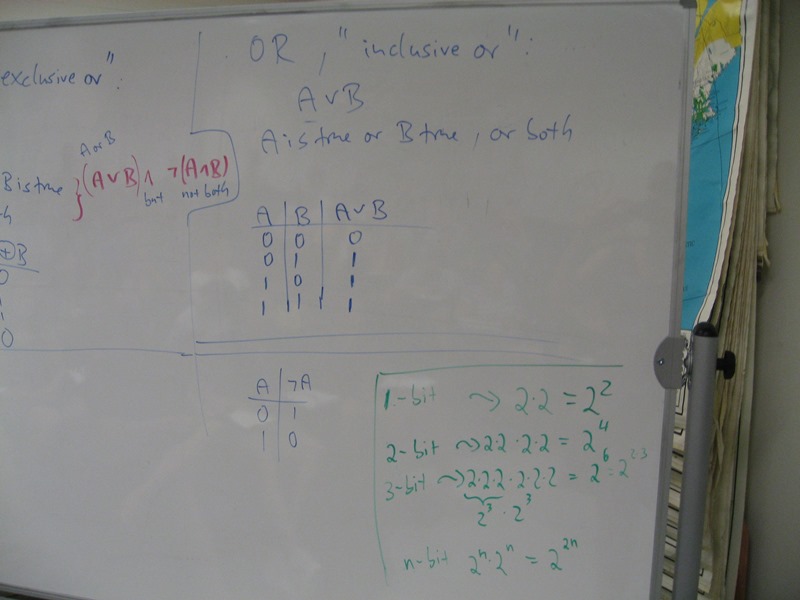 exclusive or":
A or B
B is true } (A∨B) ∧ ¬(A∧B)
but not both
h
⊕B
0
1
1
0
OR, "inclusive or":
A∨B
A is true or B true, or both
A | B | A∨B
0 | 0 | 0
0 | 1 | 1
1 | 0 | 1
1 | 1 | 1
A | ¬A
0 | 1
1 | 0
1-bit ⤳ 2·2 = 2²
2-bit ⤳ 2·2·2·2 = 2⁴
3-bit ⤳ 2·2·2·2·2·2 = 2⁶ = 2²·³
2³ · 2³
n-bit 2ⁿ·2ⁿ = 2²ⁿ